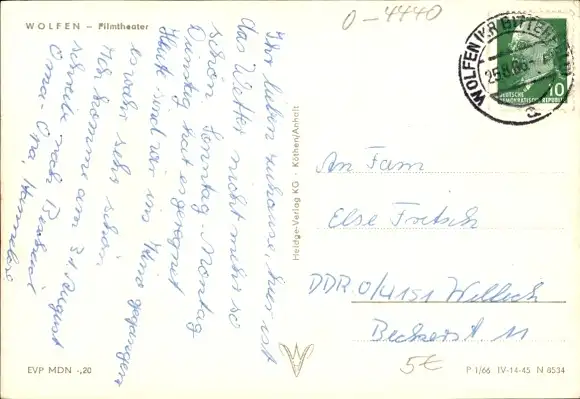 WOLFEN – Filmtheater
0-4440
Ihr lieben zuhause, hier ist
das Wetter nicht mehr so
schön. Sonntag-Montag
Dienstag hat es geregnet
Heute sind wir im Kino gegangen
es wahr sehr schön.
Ich komme am 31. August
schreibe nach
Oma-Opa,
Heldge-Verlag KG · Köthen/Anhalt
WOLFEN (KR BITTERFELD)
25.8.66
DEUTSCHE
DEMOKRATISCHE REPUBLIK
10
An Fam
Else Fritsch
DDR 0/4151 Willech
Beckerst. 11
5€
EVP MDN -,20
P 1/66 IV-14-45 N 8534